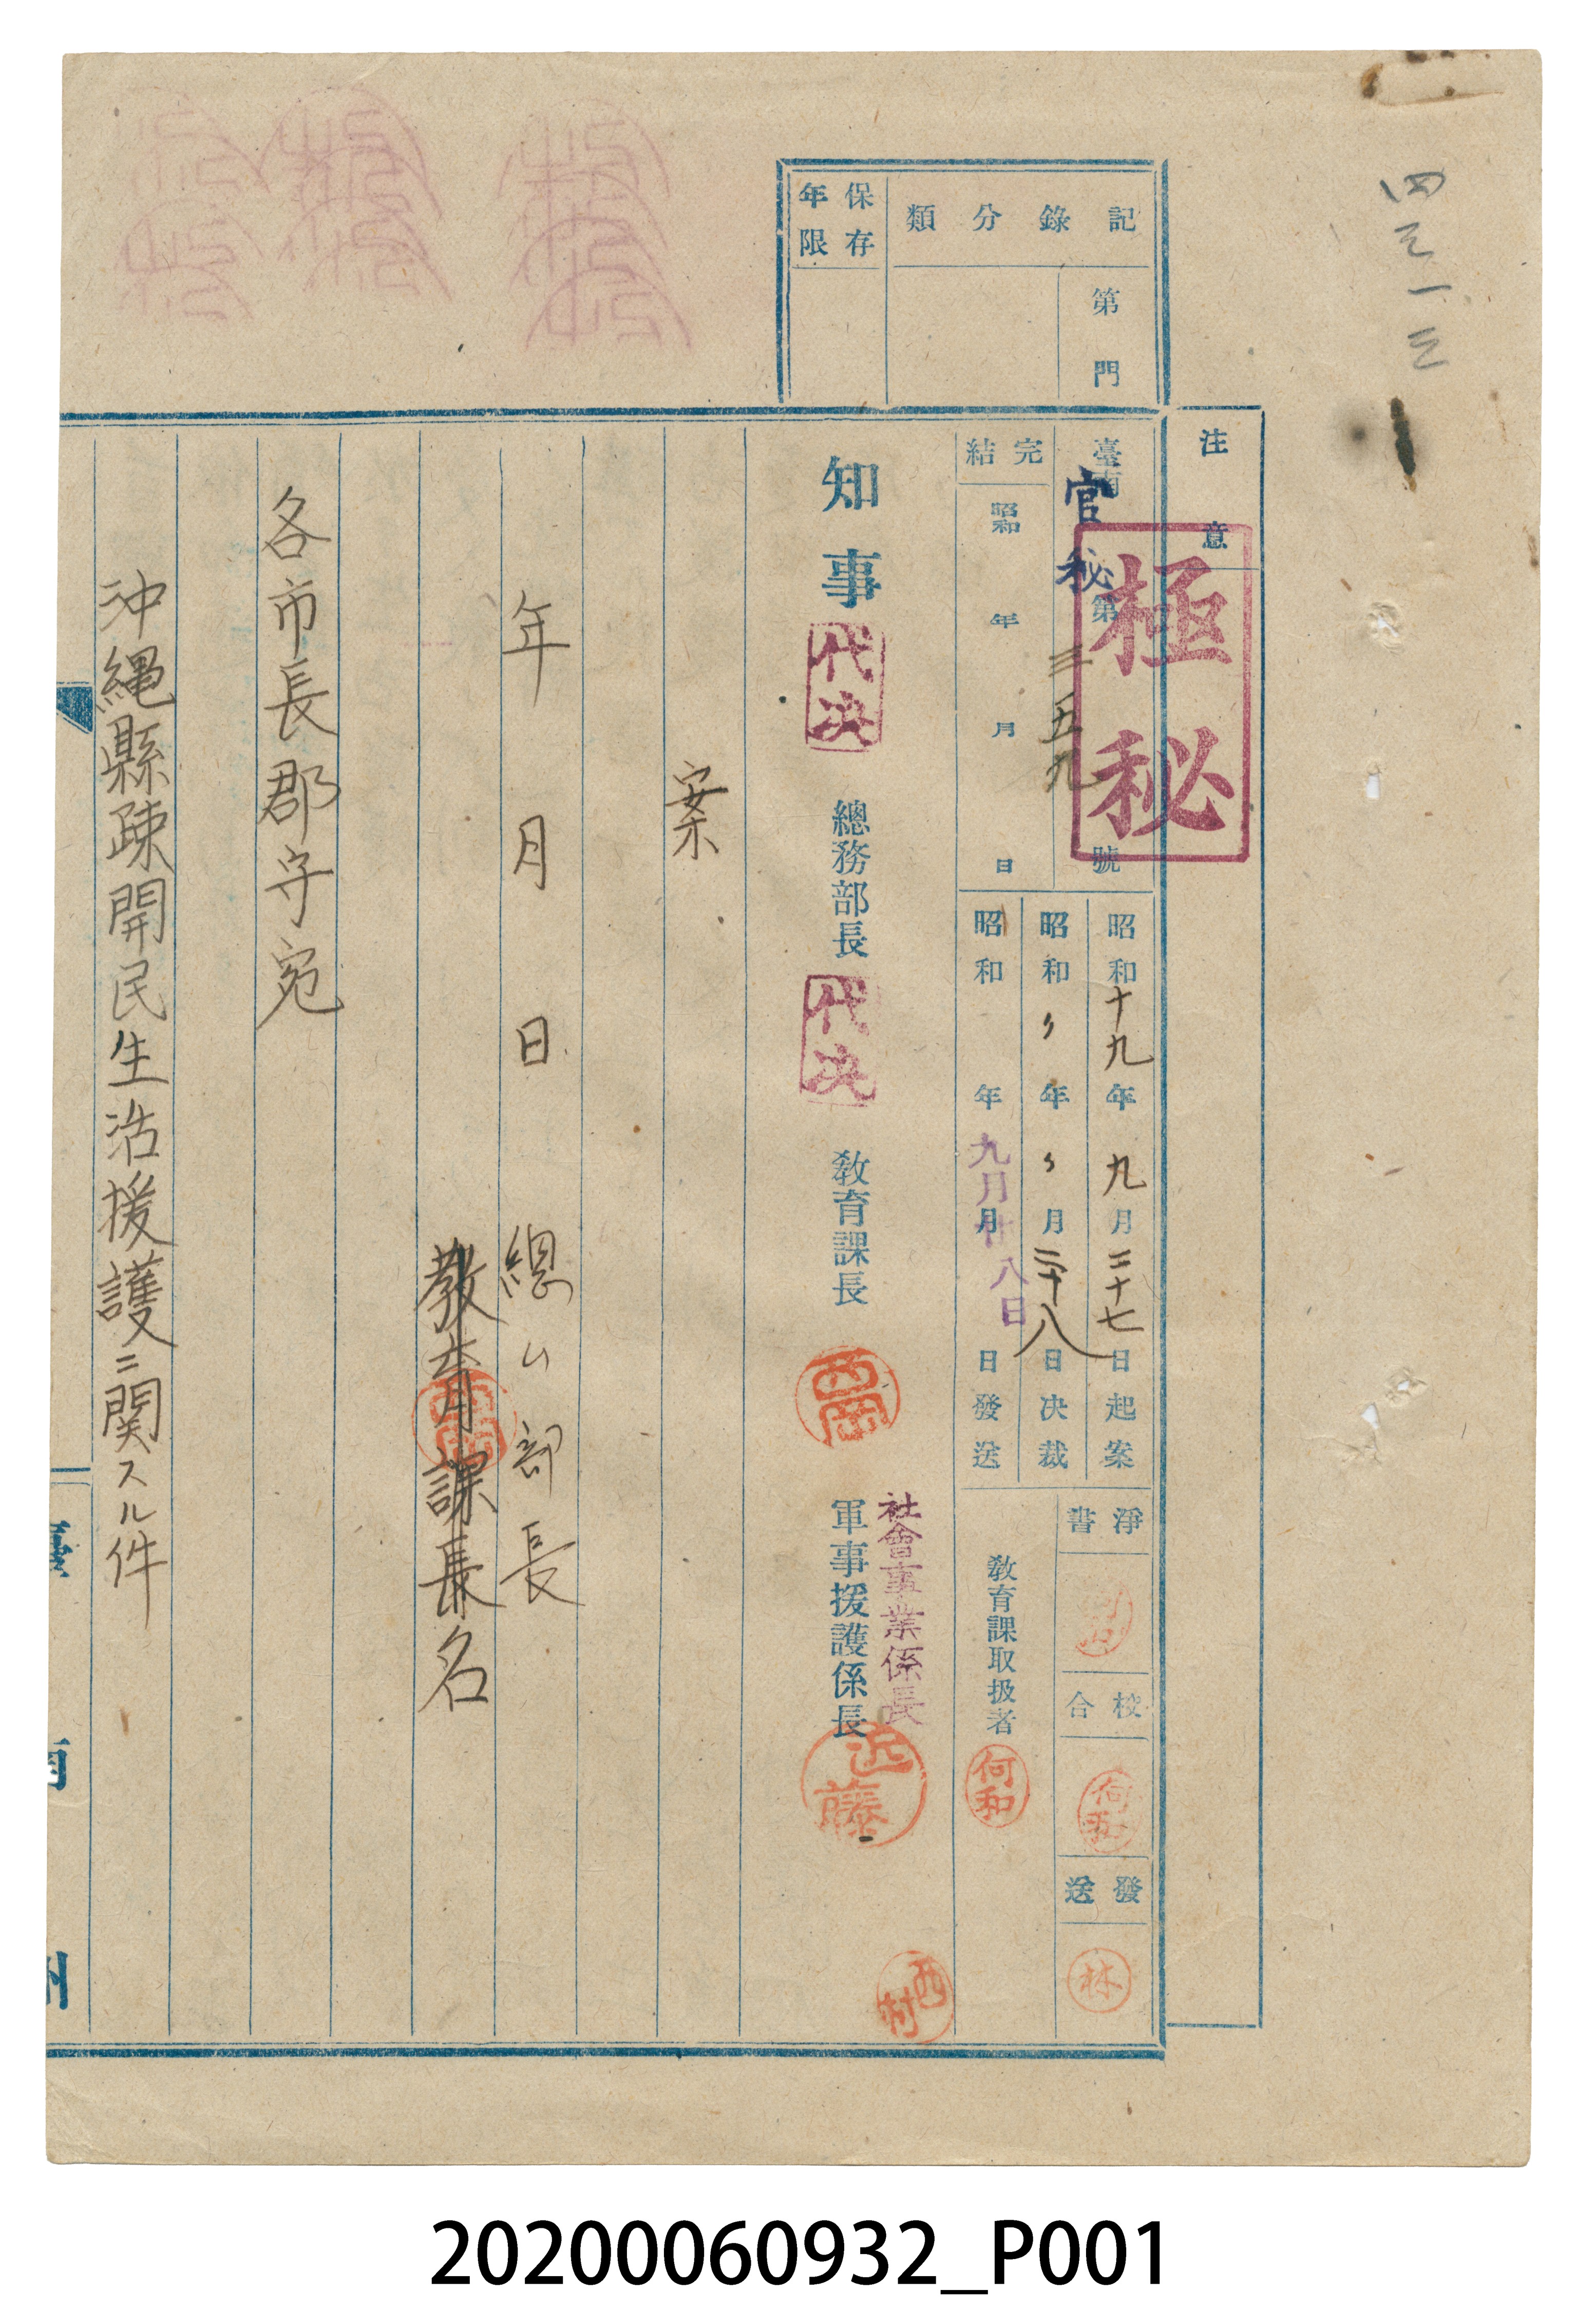 四三一三
注意
極秘
記錄分類
第門
保存年限
臺南
官秘
第三五九號
完結
昭和 年 月 日
昭和十九年九月二十七日起案
昭和〃年〃月二十八日決裁
昭和 年 月 日發送
九月廿八日
淨書
校合
何和
發送
林
教育課取扱者
何和
知事
代決
總務部長
代決
教育課長
西岡
社會事業係長
軍事援護係長
近藤
西村
案
年 月 日
總ム部長
教育課長名
西岡
各市長郡守宛
沖繩縣疎開民生活援護ニ関スル件
臺南州
20200060932_P001